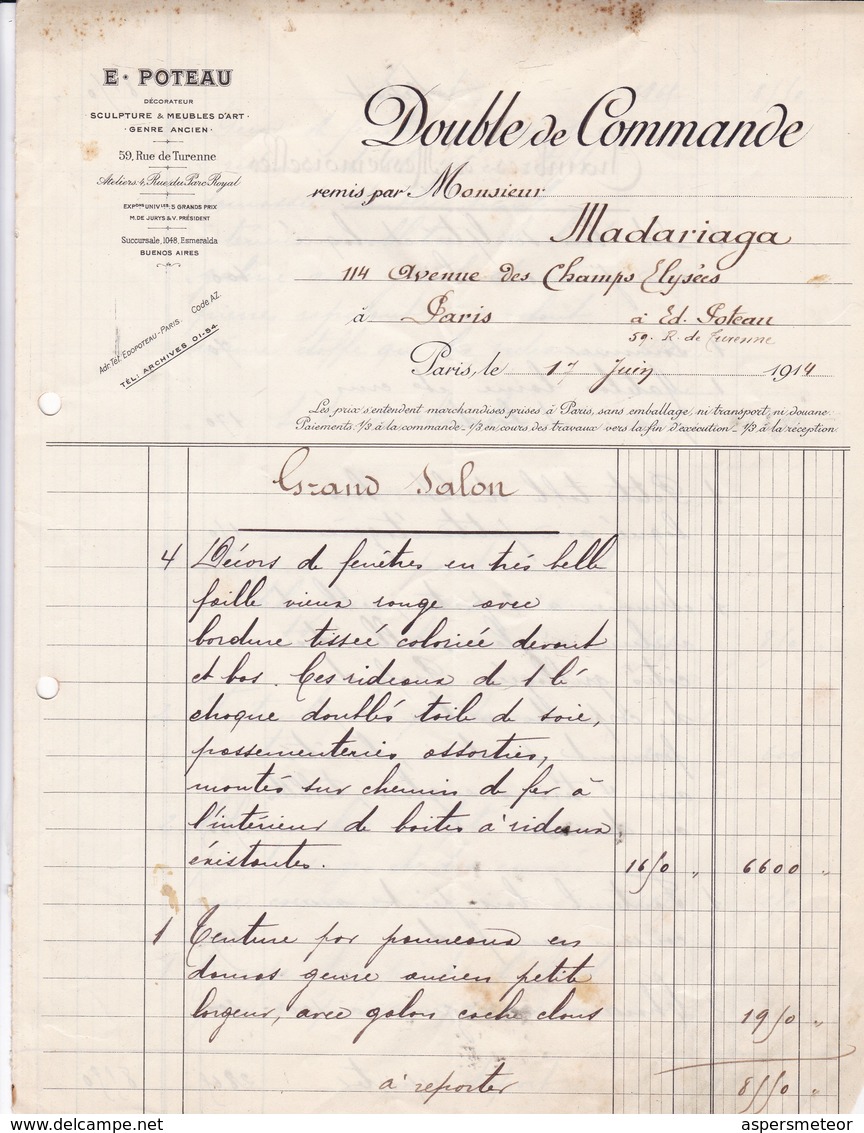 E. POTEAU
DÉCORATEUR
SCULPTURE & MEUBLES D'ART
GENRE ANCIEN
59, Rue de Turenne
Ateliers. 4, Rue du Parc Royal
EXPONS UNIVLES: 5 GRANDS PRIX
M. DE JURYS & V. PRÉSIDENT
Succursale, 1048, Esmeralda
BUENOS AIRES
Adr. Tél. EDOPOTEAU-PARIS Code AZ.
TÉL: ARCHIVES 01-54
Double de Commande
remis par Monsieur
Madariaga
114 Avenue des Champs Elysées
à Paris à Ed. Poteau
59. R. de Turenne
Paris, le 1er Juin 1914
Les prix s'entendent marchandises prises à Paris, sans emballage, ni transport, ni douane.
Paiements. 1/3 à la commande - 1/3 en cours des travaux vers la fin d'exécution - 1/3 à la réception
Grand Salon
4 Décors de fenêtres en très belle
faille vieux rouge avec
bordure tissée coloriée devant
et bas. Ces rideaux de 1 lé
chaque doublés toile de soie,
passementeries assorties,
montés sur chemin de fer à
l'intérieur de boites à rideaux
éxistantes. 1650 " 6600 "
1 Tenture par panneaux en
damas genre ancien petite
largeur, avec galon cache clous 1950 "
à reporter 8550 "
delcampe.net
aspersmeteor